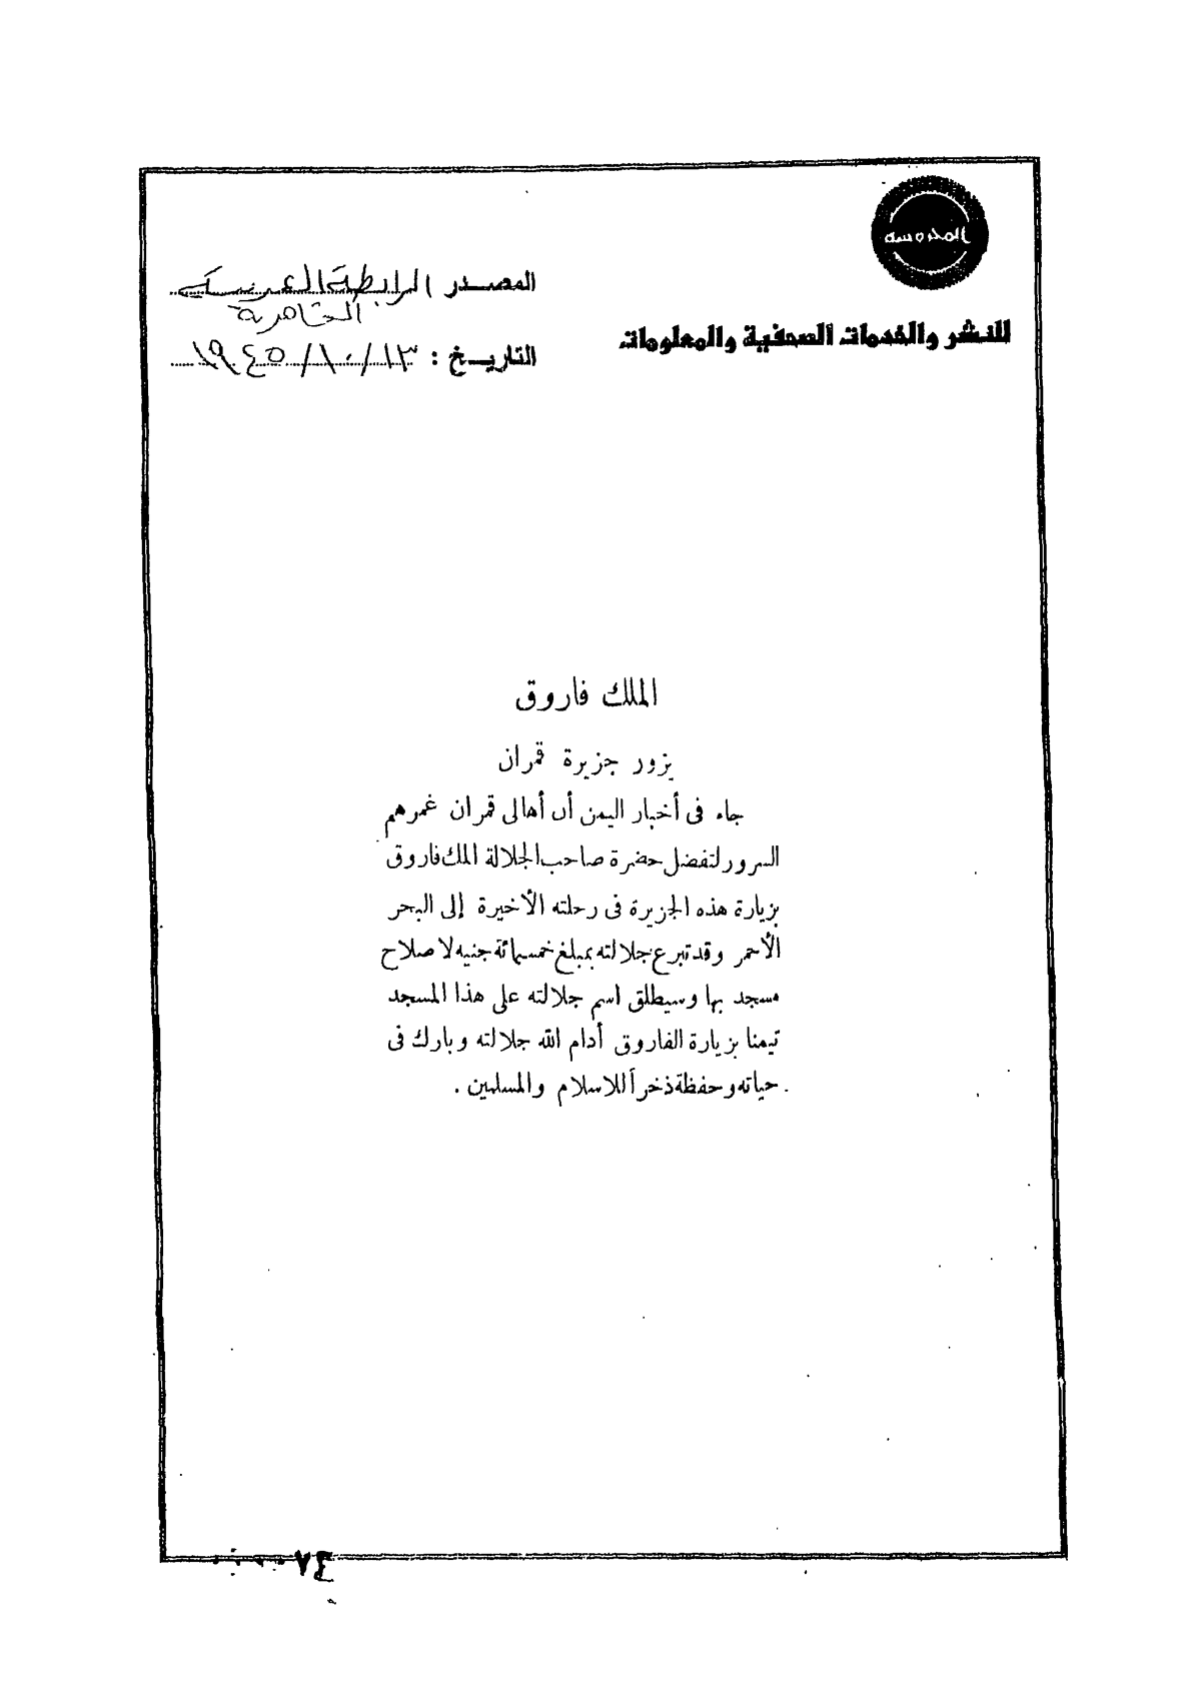 المحروسة
للنشر والخدمات الصحفية والمعلومات
المصدر الرابطة العربية
القاهرية
التاريخ : ١٣/١٠/١٩٤٥
الملك فاروق
يزور جزيرة قمران
جاء فى أخبار اليمن أن أهالى قمران غمرهم
السرور لتفضل حضرة صاحب الجلالة الملك فاروق
بزيارة هذه الجزيرة فى رحلته الأخيرة إلى البحر
الأحمر وقد تبرع جلالته بمبلغ خمسمائة جنيه لاصلاح
مسجد بها وسيطلق اسم جلالته على هذا المسجد
تيمنا بزيارة الفاروق أدام الله جلالته وبارك فى
حياته وحفظة ذخراً للاسلام والمسلمين .